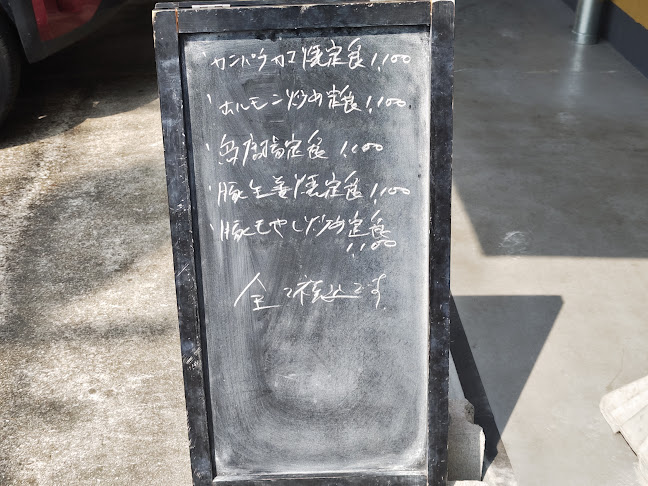 ・カンパチカマ焼定食 1,100
・ホルモン炒め定食 1,100
・唐揚定食 1,100
・豚生姜焼定食 1,100
・豚もやし炒め定食
1,100
全て税込です